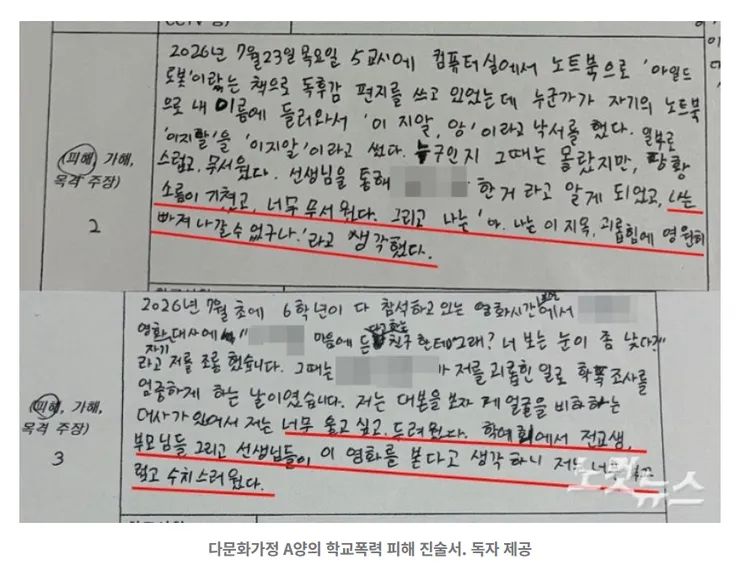 2026년 7월23일 목요일 5교시에 컴퓨터실에서 노트북으로 '아일드
로봇'이랐는 책으로 독후감 편지를 쓰고 있었는데 누군가가 자기의 노트북
으로 내 이름에 들러와서 '이 지알, 앙'이라고 낙서를 했다. 일부로
'이지랄'을 '이지알'이라고 썼다. 누구인지 그때는 몰랐지만, 당황
스럽고, 무서웠다. 선생님을 통해 한거 라고 알게 되었고, 나는
소름이 기쳤고, 너무 무서웠다. 그리고 나는 '아. 나는 이 지옥, 괴롭힘에 영원히
빠져 나갈수 없구나.'라고 생각했다.
(피해, 가해,
목격 주장)
2
2026년 7월 초에 6학년이 다 참석하고 있는 영화시간에서
영화 대사에 마음에 든 친구한테 "그래? 너 보는 눈이 좀 낮다?"
자기
라고 저를 조롱했습니다. 그때는 가 저를 괴롭힌 일로 학폭 조사를
엄중하게 하는 날이였습니다. 저는 대본을 보자 제 얼굴을 비하하는
대사가 있어서 저는 너무 울고 싶고, 두려웠다. 학예회에서 전교생,
부모님들 그리고 선생님들이 이 영화를 본다고 생각하니 저는 너무
럽고 수치스러웠다.
(피해, 가해,
목격 주장)
3
노컷뉴스
다문화가정 A양의 학교폭력 피해 진술서. 독자 제공